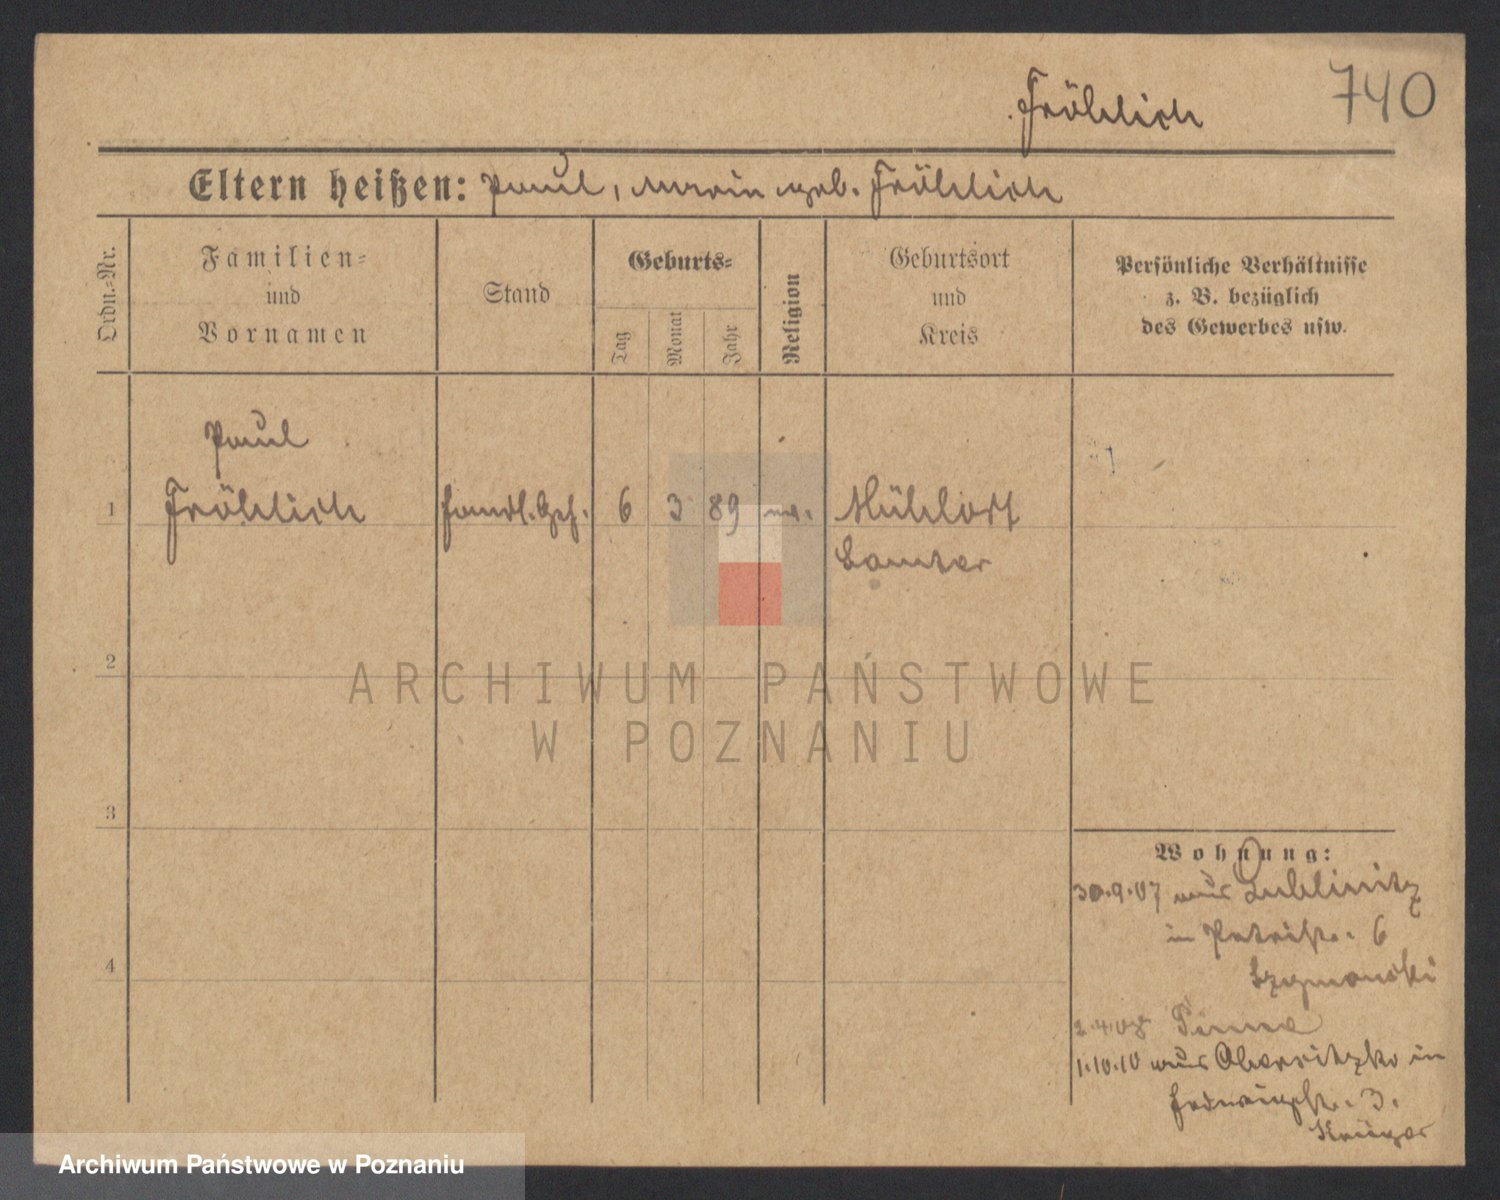 Fröhlich 740
Eltern heißen: Paul, Maria geb. Fröhlich
Ordn.-Nr.
Familien-
und
Vornamen
Stand
Geburts-
Tag
Monat
Jahr
Religion
Geburtsort
und
Kreis
Persönliche Verhältnisse
z. B. bezüglich
des Gewerbes usw.
Paul
1 Fröhlich Handl. Geh. 6 3 89 ev. Mühlort
Samter
2
3
4
ARCHIWUM PAŃSTWOWE
W POZNANIU
Wohnung:
30.9.07 aus Lublinitz
in Petristr. 6
Szymanski
2.4.08 Pinne
1.10.10 aus Obersitzko in
Hedwigstr. 3.
Krüger
Archiwum Państwowe w Poznaniu